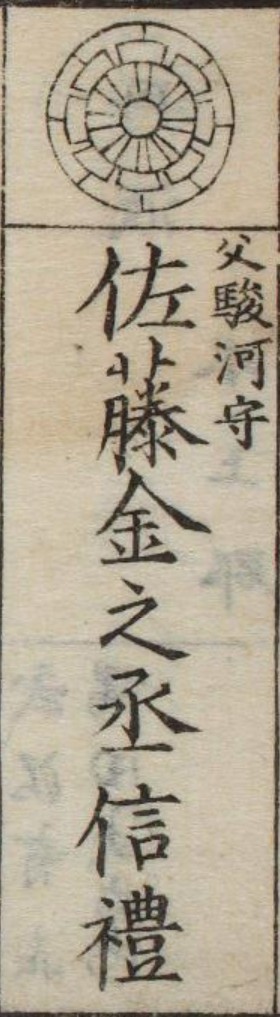 父駿河守
佐藤金之丞信禮